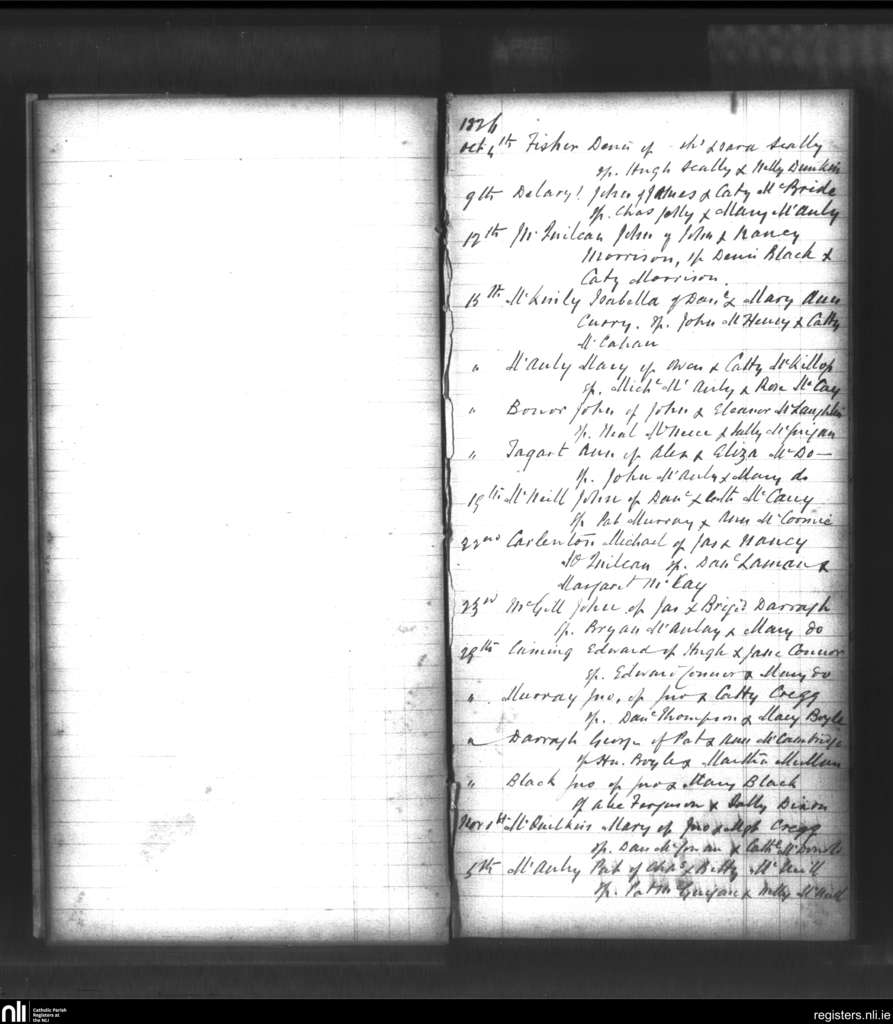 1826
Oct 4th Fisher Denis of & Sara Scally
sp. Hugh Scally & Nelly Dunkin
9th Delary! John of James & Caty McBride
sp. Chas Jolly & Mary McAuly
12th McQuilean John of John & Nancy
Morrison, sp Denis Black &
Caty Morrison.
15th McKinly Isabella of Danl & Mary Ann
Curry. sp. John McHenry & Catty
McCahan
" McAuly Mary of Owen & Catty McKillop
sp. Michl McAuly & Rose McCay
" Bonor John of John & Eleanor McLaughlin
sp. Neal McNeece & Sally McGuigan
" Tagart Ann of Alex & Eliza McDo—
sp. John McAuly & Mary do
19th McNeill John of Danl & Cath McCauy
sp Pat Murray & Ann McCormic
22nd Carlenton Michael of Jas & Nancy
McQuilean sp. Danl Laman &
Margaret McKay
23rd McGill John of Jas & Brigid Darragh
sp. Bryan McAulay & Mary do
29th Cuming Edward of Hugh & Jane Connor
sp. Edward Connor & Mary do
" Murray Jno, of Jno & Catty Cregg
sp. Danl Thompson & Mary Boyle
" Darragh George of Pat & Ann McCambridge
sp Hu. Boyle & Martha McMullan
" Black Jno of Jno & Mary Black
sp Alex Ferguson & Sally Dixon
Nov 1st Mary of Jno & Mgt Cregg
sp. Dan & Cathe
5th McAuly Pat of Chas & Betty McNeill
sp. Pat McGuigan & Nelly McNeill
nli
Catholic Parish
Registers at
the NLI
registers.nli.ie